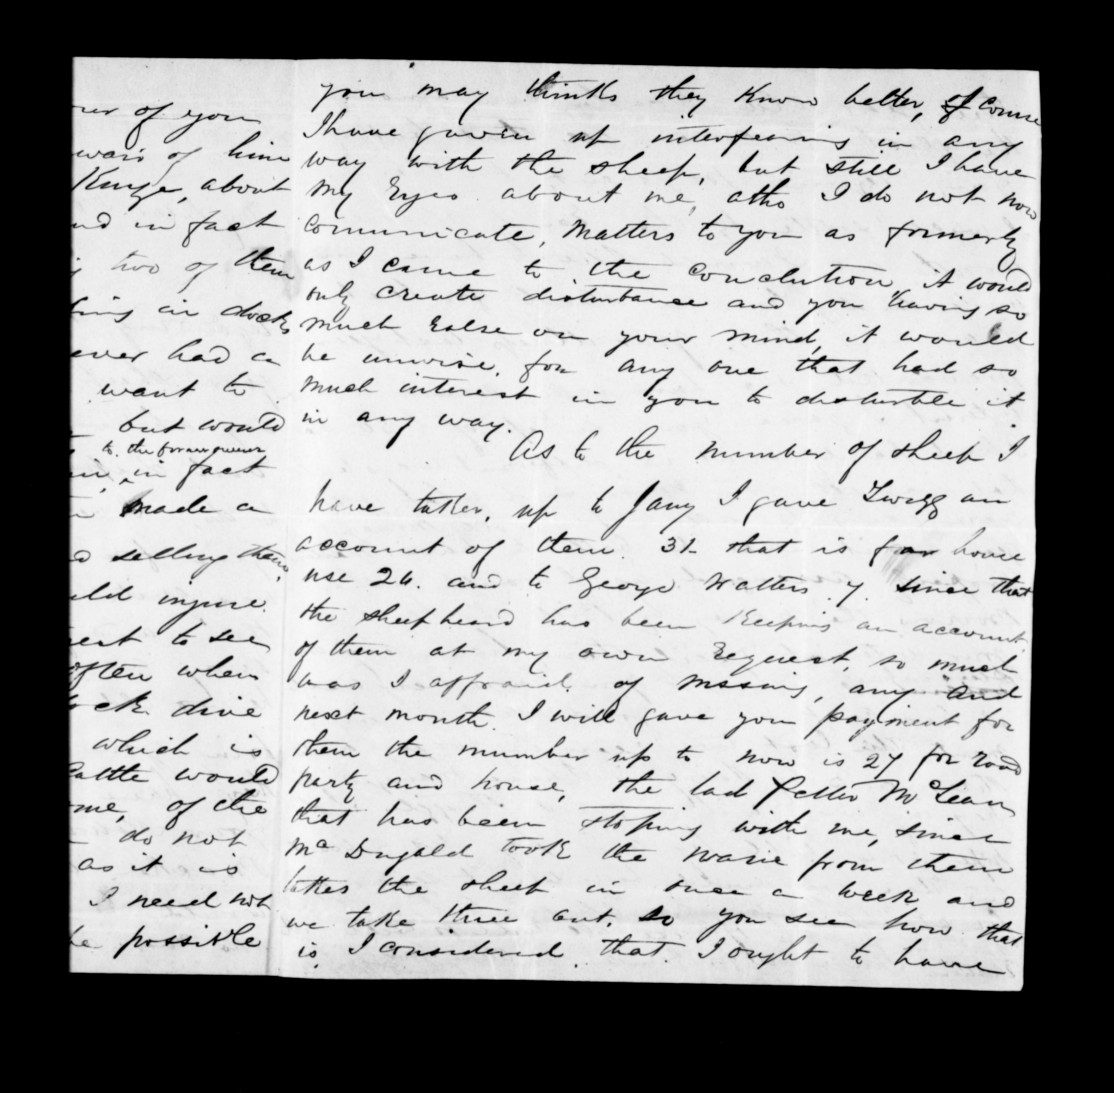 ner of you
wais of him
Kinge, about
nd in fact
two of them
ing in docks
ever had a
want to
but would
to the former owner
in fact
made a
selling them
uld injure
rest to see
often when
ck dive
which is
Cattle would
me, of the
do not
as it is
I need not
be possible
you may thinks they Know better, of course
I have given up interfearing in any
way with the sheep, but still I have
my Eyes about me, altho I do not now
communicate, Matters to you as formerly
as I came to the conclution it would
only create disturbance and you having so
much Ealse on your mind, it would
be unwise, for any one that had so
much interest in you to disturble it
in any way.
As to the number of sheep I
have taken, up to Jany I gave Twigg an
account of them. 31 that is for house
use 24. and to George Watters 7. since that
the sheepheard has been Keeping an account
of them at my own Request, so much
was I affraid of missing, any and
next month I will gave you payment for
them the number up to now is 27 for road
party and house, the lad Petter McLean
that has been stoping with me, since
Mc Dugald took the warie from them
takes the sheep in once a week and
we take three out, so you see how that
is, I considered that I ought to have